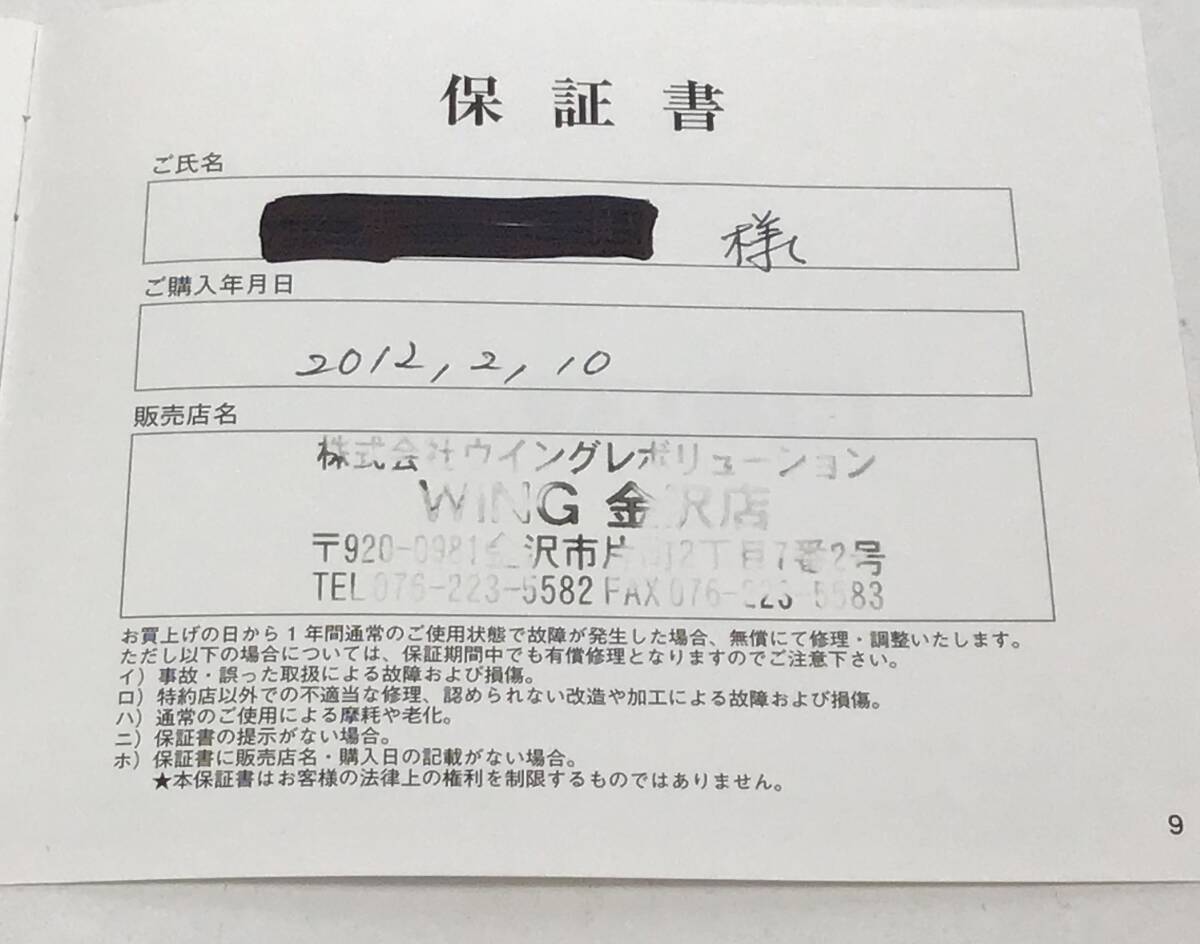 保証書
ご氏名
様
ご購入年月日
2012, 2, 10
販売店名
株式会社ウイングレボリューション
WING 金沢店
〒920-0981金沢市片町2丁目7番2号
TEL076-223-5582 FAX076-223-5583
お買上げの日から1年間通常のご使用状態で故障が発生した場合、無償にて修理・調整いたします。
ただし以下の場合については、保証期間中でも有償修理となりますのでご注意下さい。
イ）事故・誤った取扱による故障および損傷。
ロ）特約店以外での不適当な修理、認められない改造や加工による故障および損傷。
ハ）通常のご使用による摩耗や老化。
ニ）保証書の提示がない場合。
ホ）保証書に販売店名・購入日の記載がない場合。
★本保証書はお客様の法律上の権利を制限するものではありません。
9